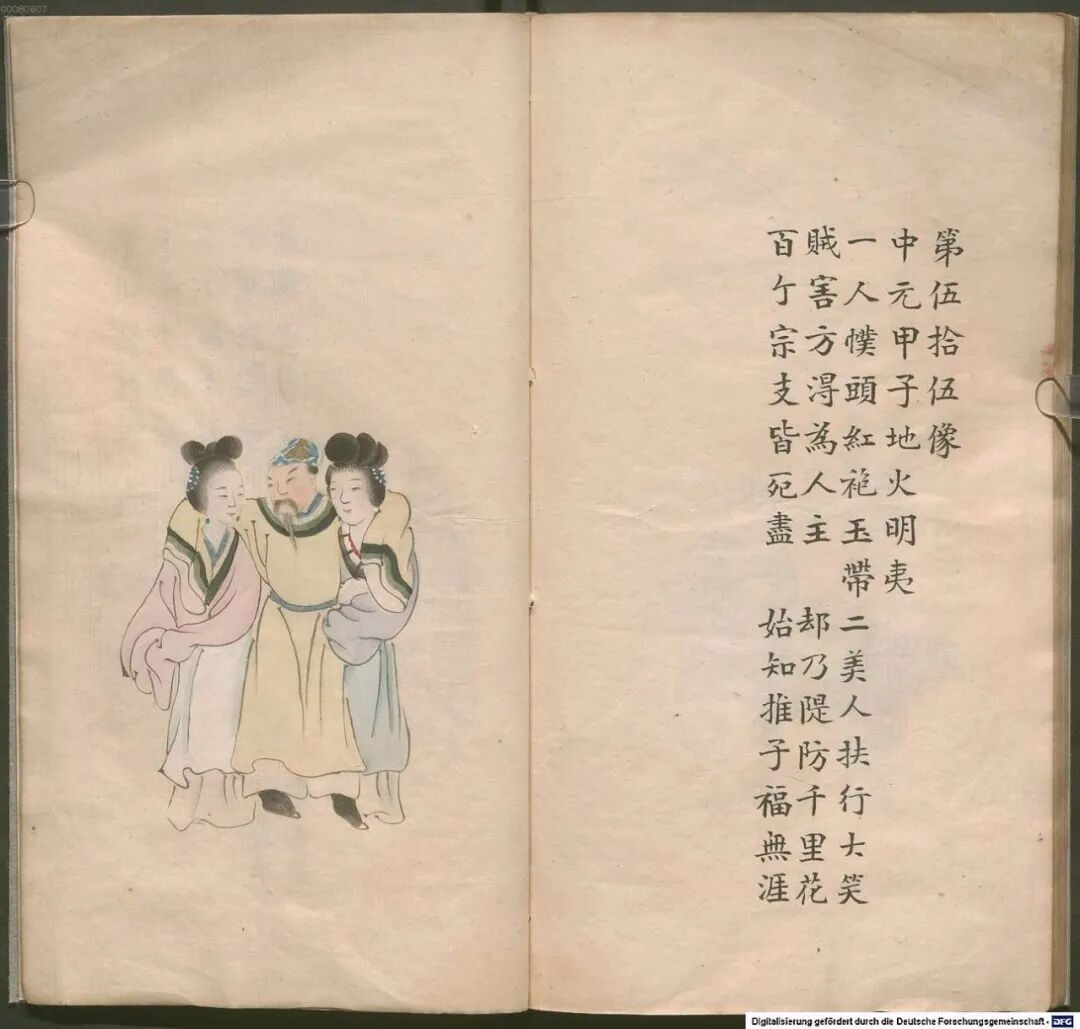 00080607
第伍拾伍像
中元甲子地火明夷
一人幞頭紅袍玉帶 二美人扶行大笑
賊害方淂為人主 却乃隄防千里花
百个宗支皆死盡 始知推子福無涯
Digitalisierung gefördert durch die Deutsche Forschungsgemeinschaft - DFG